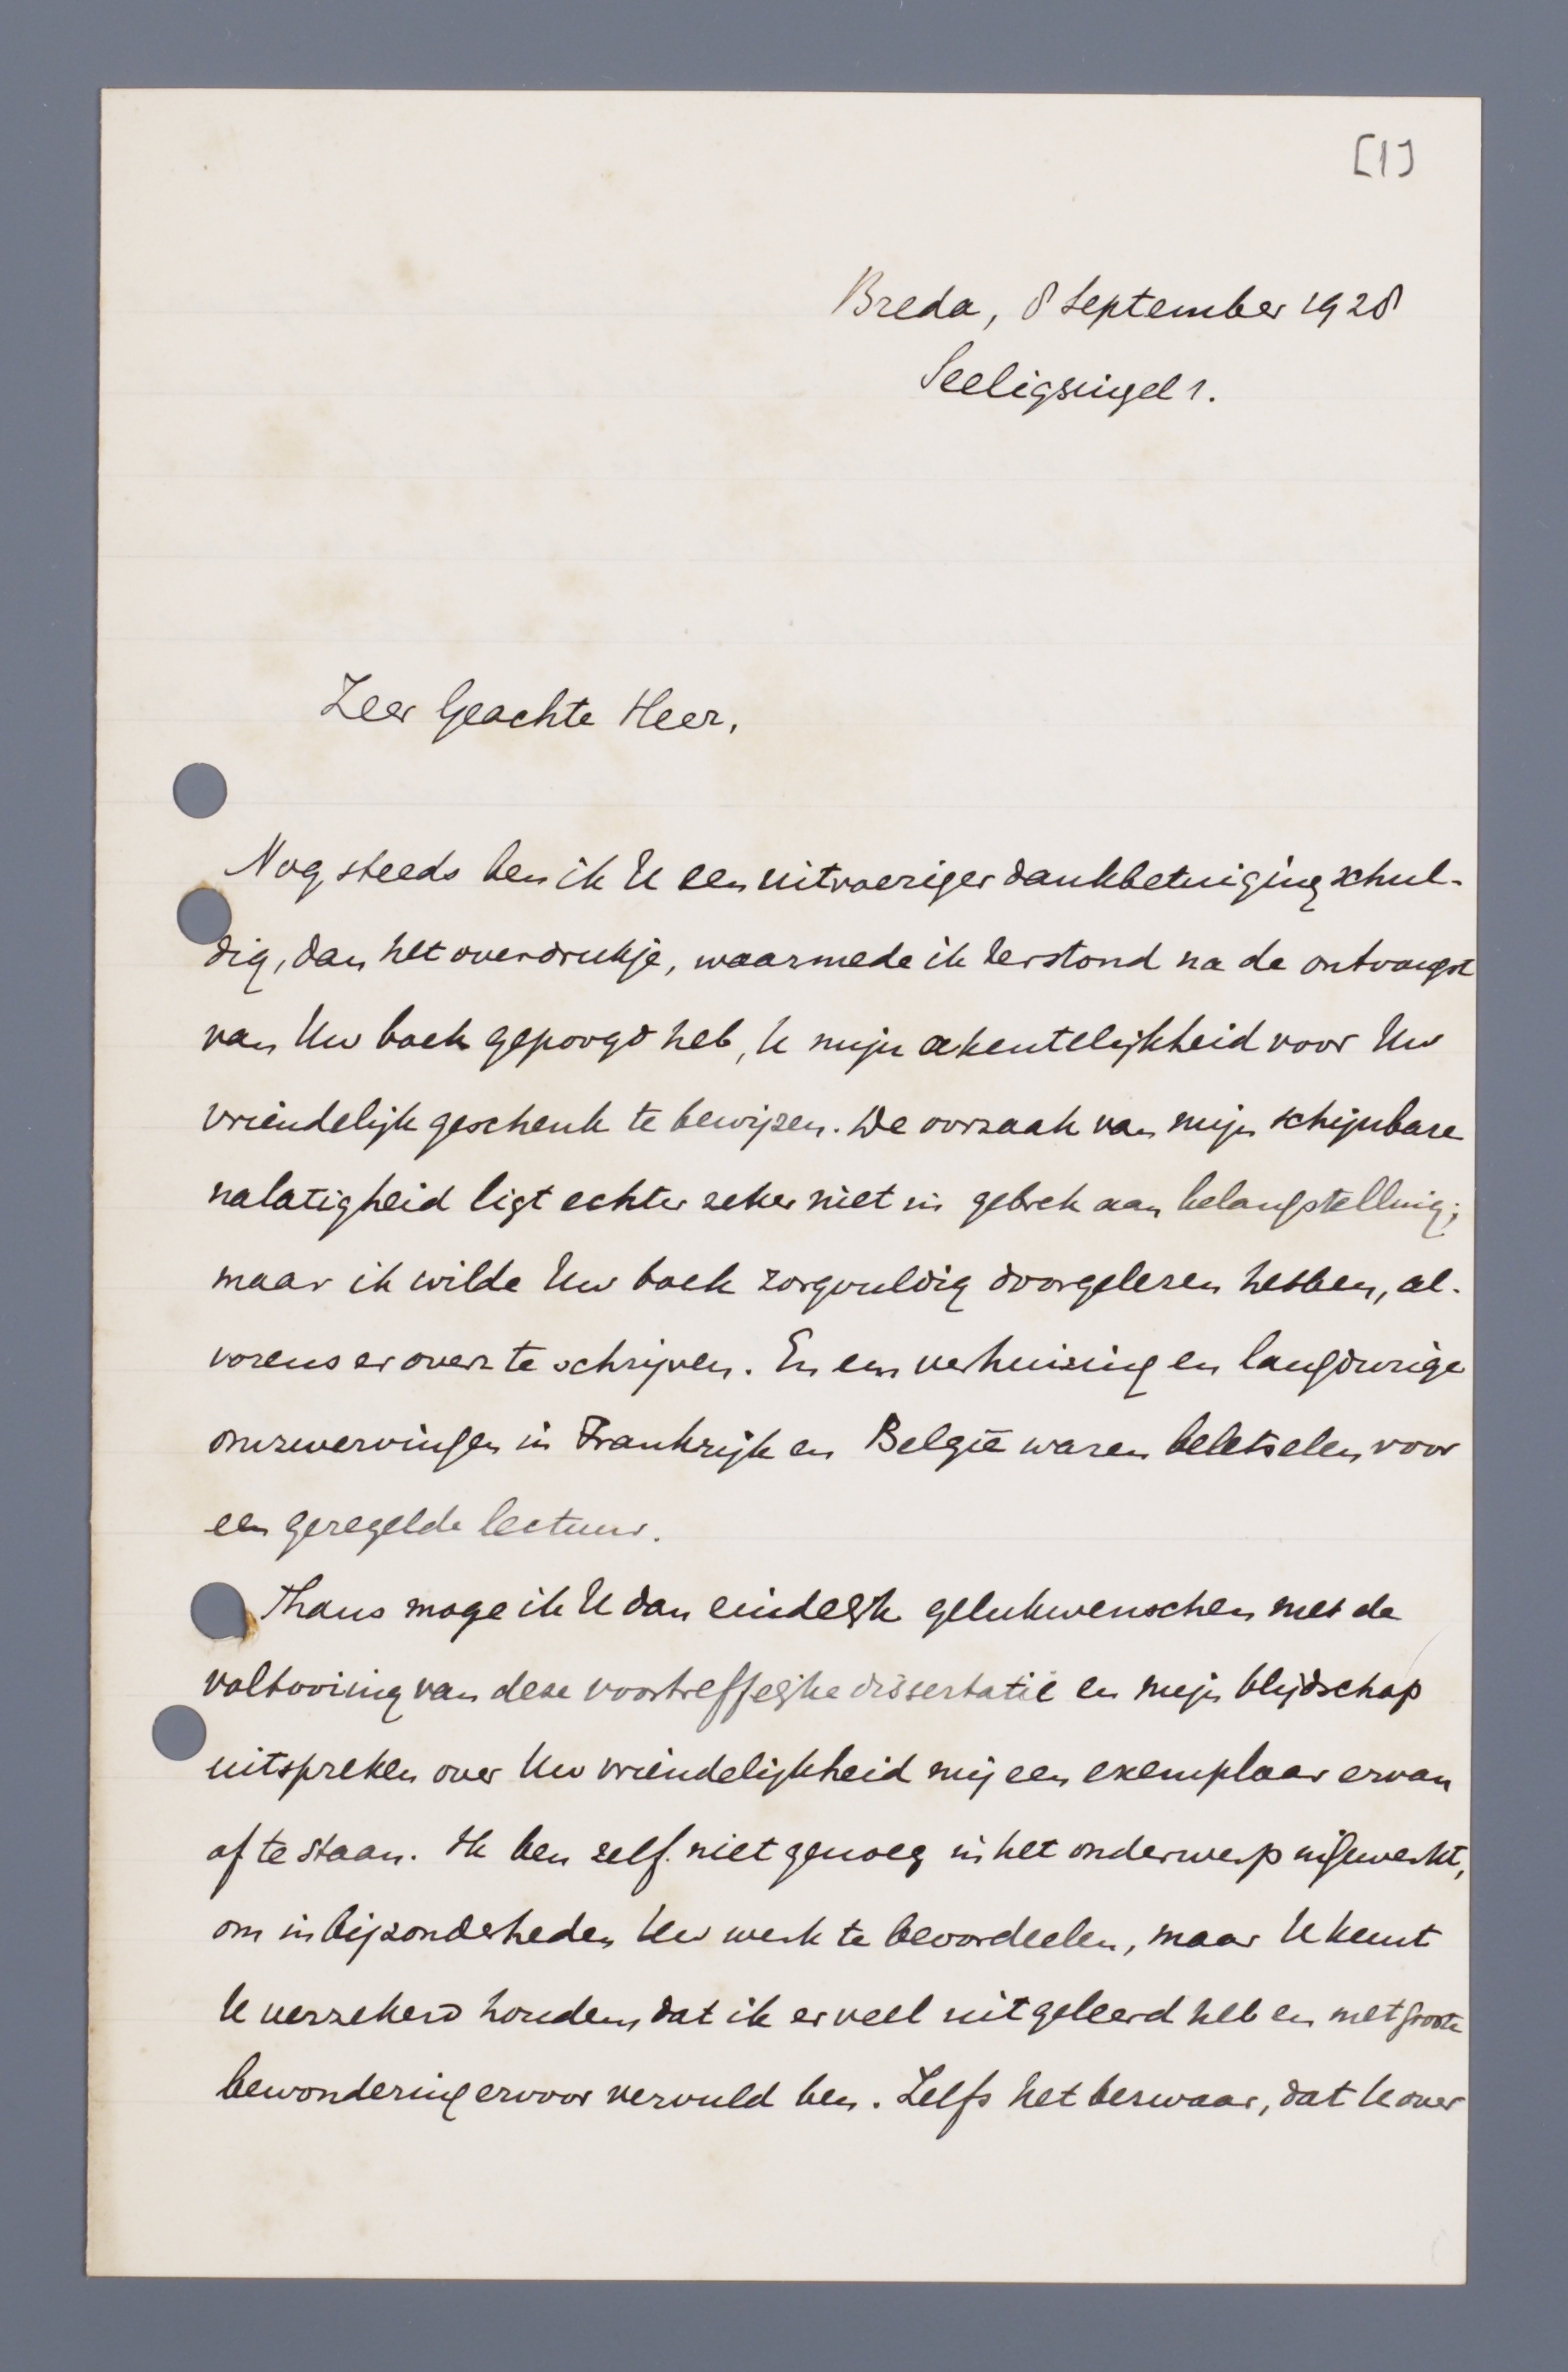 [1]
Breda, 8 September 1928
Seeligsingel 1.
Zeer Geachte Heer,
Nog steeds ben ik U een uitvoeriger dankbetuiging schul-
dig, dan het overdrukje, waarmede ik terstond na de ontvangst
van Uw boek gepoogd heb, U mijn erkentelijkheid voor Uw
vriendelijk geschenk te bewijzen. De oorzaak van mijn schijnbare
nalatigheid ligt echter zeker niet in gebrek aan belangstelling;
maar ik wilde Uw boek zorgvuldig doorgelezen hebben, al-
vorens er over te schrijven. En een verhuizing en langdurige
omzwervingen in Frankrijk en België waren beletselen voor
een geregelde lectuur.
Thans moge ik U dan eindelijk gelukwenschen met de
voltooiing van deze voortreffelijke dissertatie en mijn blijdschap
uitspreken over Uw vriendelijkheid mij een exemplaar ervan
af te staan. Ik ben zelf niet genoeg in het onderwerp ingewerkt,
om in bijzonderheden Uw werk te beoordeelen, maar U kunt
U verzekerd houden, dat ik er veel uit geleerd heb en met groote
bewondering ervoor vervuld ben. Zelfs het bezwaar, dat U over